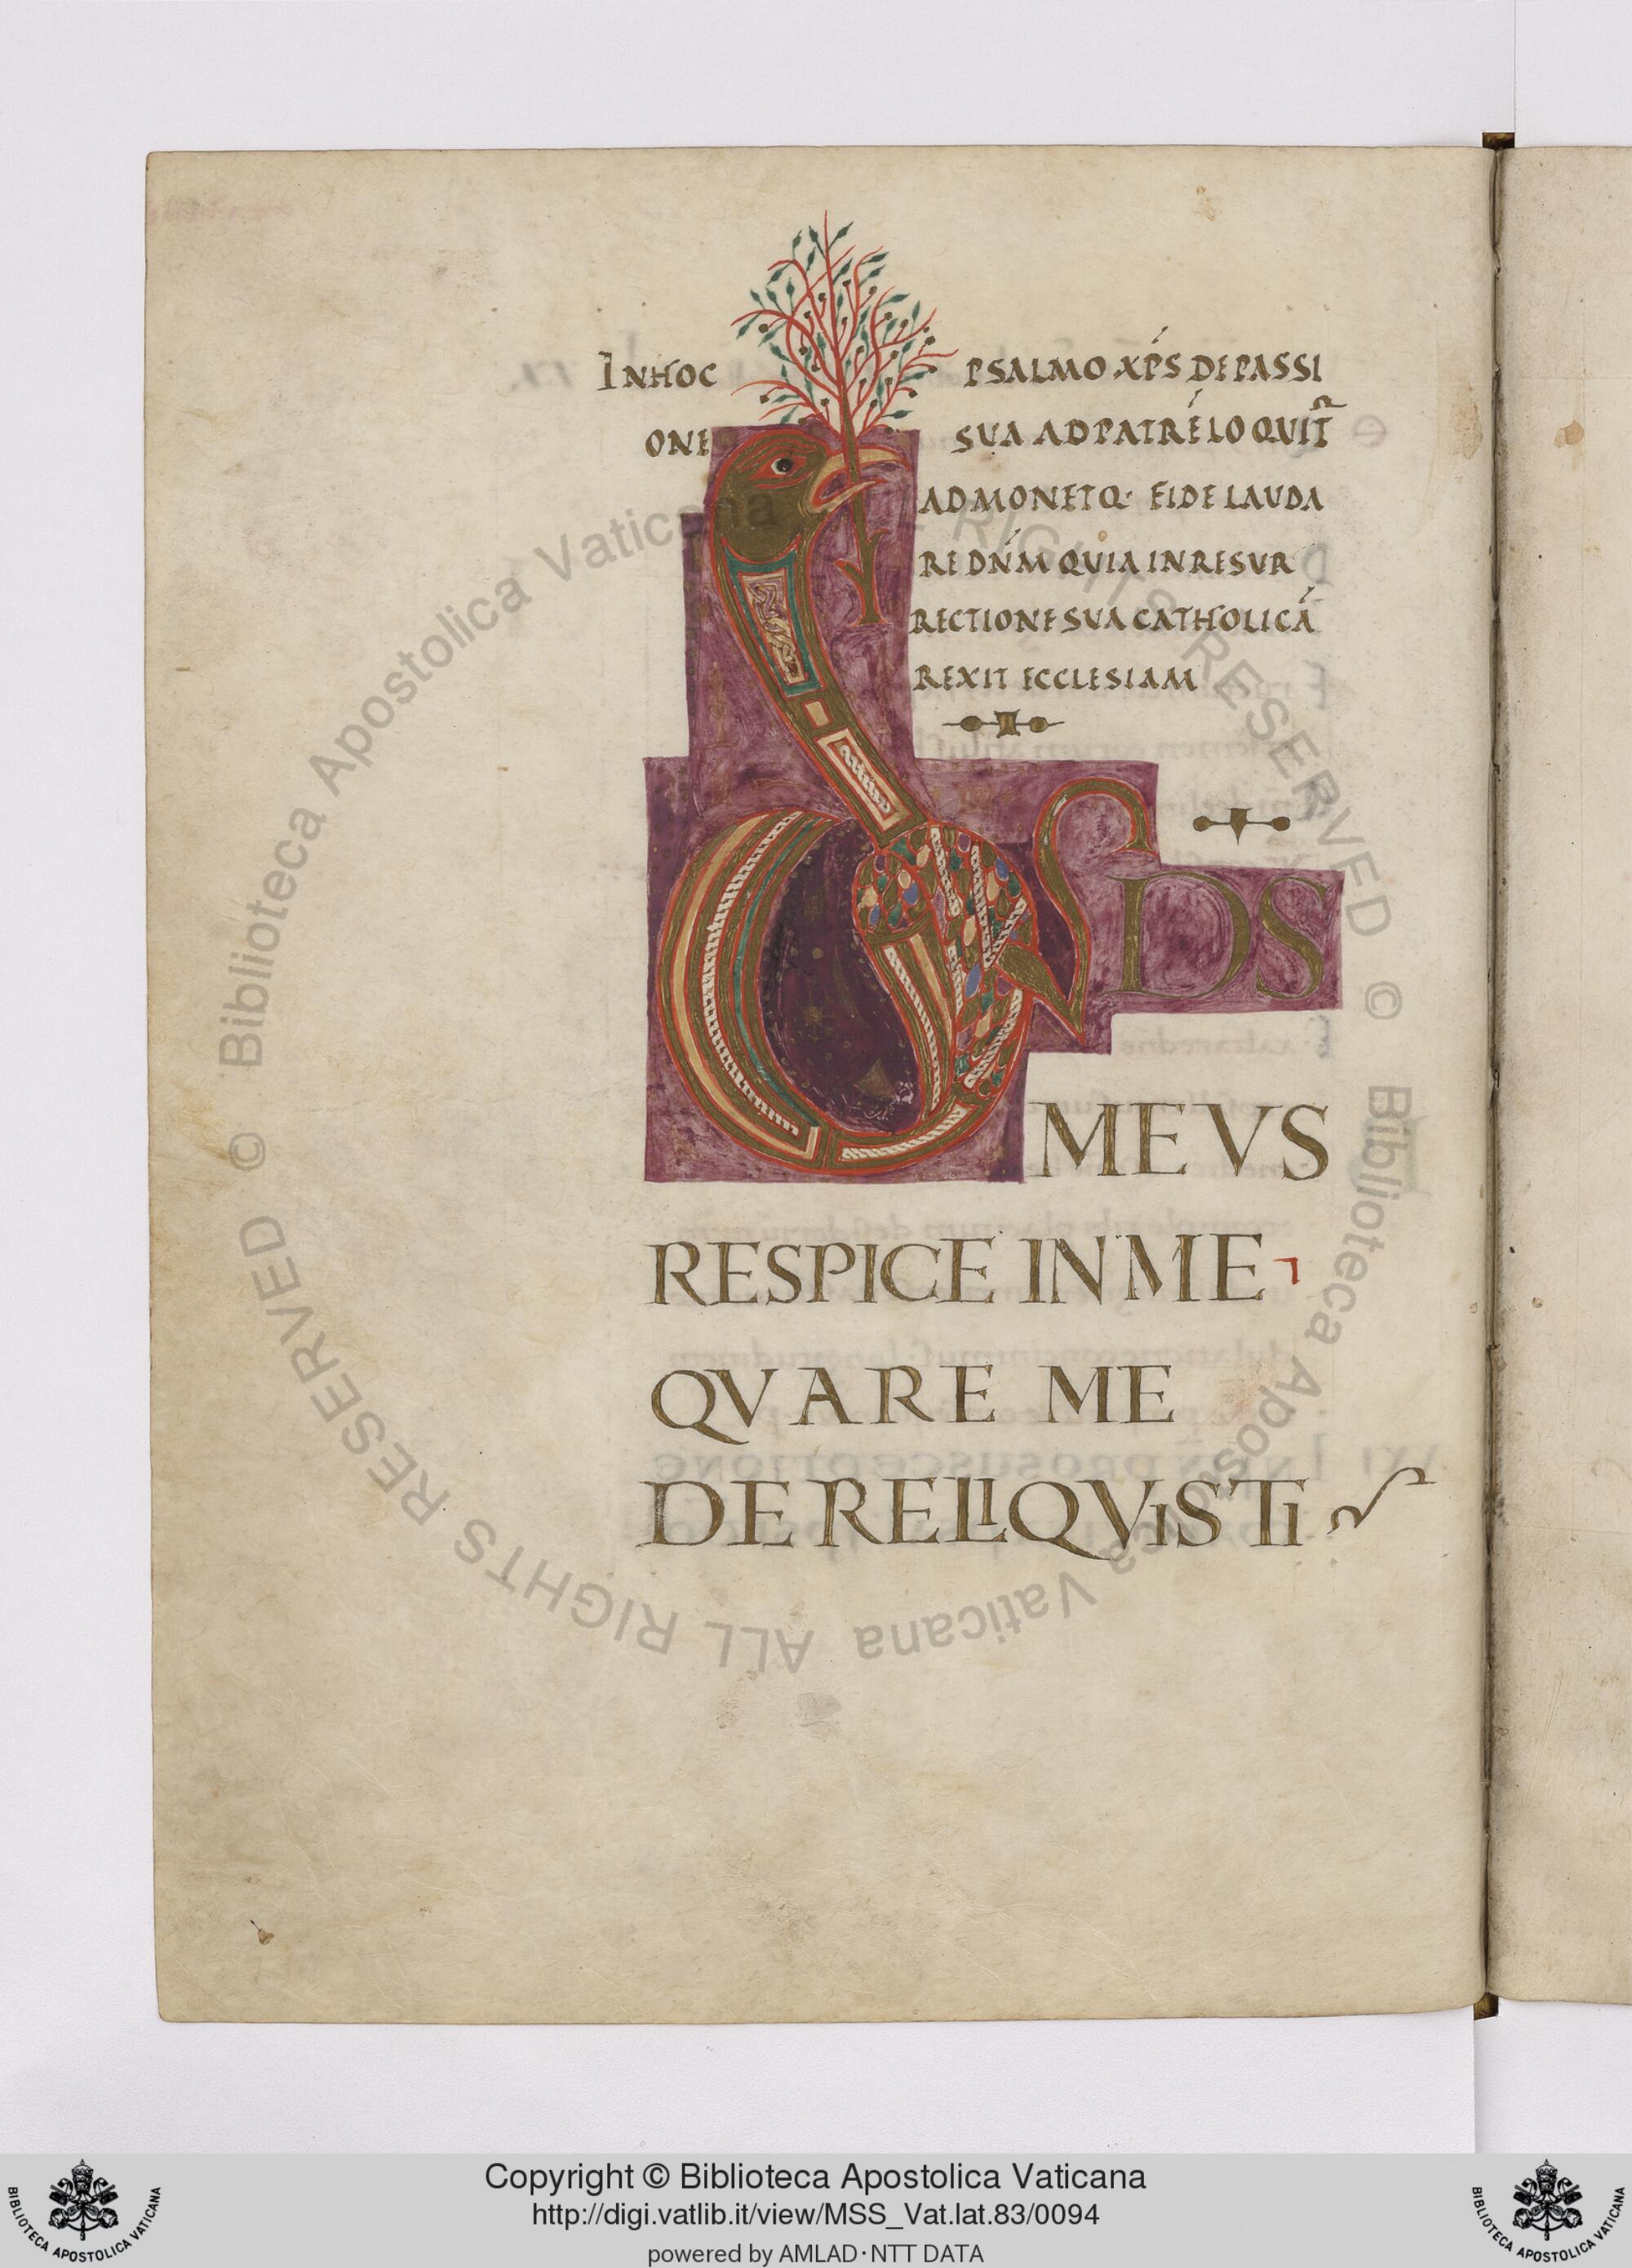 INHOC PSALMO XP̅S DEPASSI
ONE SUA ADPATRE̅ LOQUIT̅
ADMONETQ· EIDE LAUDA
RE DN̅M QUIA INRESUR
RECTIONE SUA CATHOLICA̅
REXIT ECCLESIAM
DS DS
MEVS
RESPICE IN ME
QVARE ME
DERELIQVISTI
© Biblioteca Apostolica Vaticana ALL RIGHTS RESERVED © Biblioteca Apostolica Vaticana ALL RIGHTS RESERVED
Copyright © Biblioteca Apostolica Vaticana
http://digi.vatlib.it/view/MSS_Vat.lat.83/0094
powered by AMLAD·NTT DATA
BIBLIOTECA APOSTOLICA VATICANA
BIBLIOTECA APOSTOLICA VATICANA